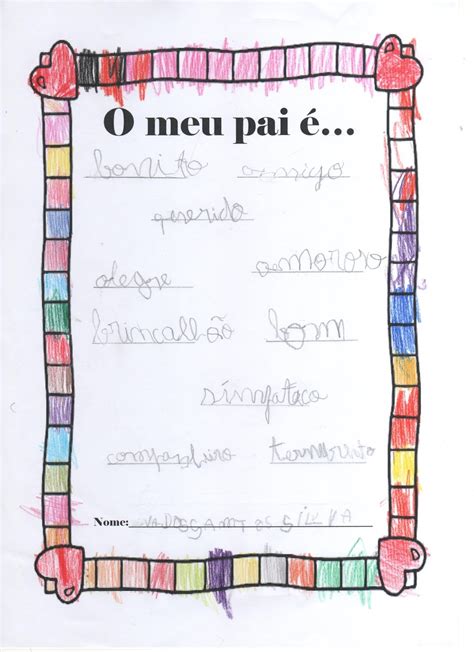 O meu pai é...
bonito amigo
querido
alegre amoroso
brincalhão bom
simpataco
ternurento
Nome: SILVA